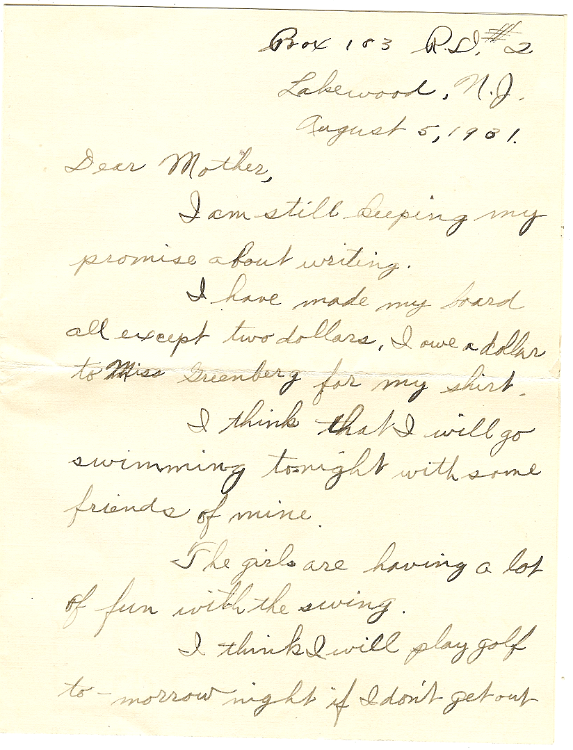 Box 103 R.D. #2
Lakewood, N.J.
August 5, 1931.
Dear Mother,
I am still keeping my
promise about writing.
I have made my board
all except two dollars. I owe a dollar
to Miss Greenberg for my shirt.
I think that I will go
swimming tonight with some
friends of mine.
The girls are having a lot
of fun with the swing.
I think I will play golf
to-morrow night if I don't get out